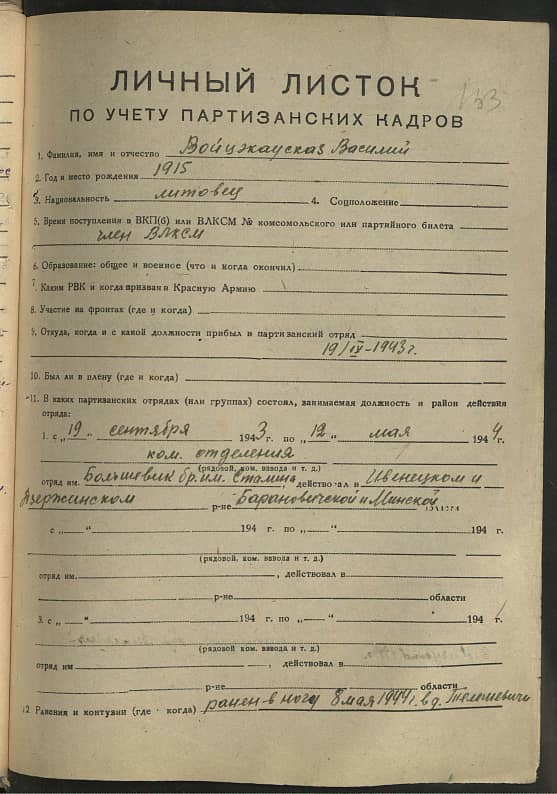 153
ЛИЧНЫЙ ЛИСТОК
ПО УЧЕТУ ПАРТИЗАНСКИХ КАДРОВ
1. Фамилия, имя и отчество Войцэкаускаэ Василий
2. Год и место рождения 1915
3. Национальность литовец 4. Соцположение
5. Время поступления в ВКП(б) или ВЛКСМ № комсомольского или партийного билета
член ВЛКСМ
6. Образование: общее и военное (что и когда окончил)
7. Каким РВК и когда призван в Красную Армию
8. Участие на фронтах (где и когда)
9. Откуда, когда и с какой должности прибыл в партизанский отряд
19/IX-1943г.
10. Был ли в плену (где и когда)
11. В каких партизанских отрядах (или группах) состоял, занимаемая должность и район действия
отряда:
1. с „19" сентября 1943 г. по „12" мая 1944 г.
ком. отделения
(рядовой, ком. взвода и т. д.)
отряд им. Большевик бр. им. Сталина действовал в Ивенецком и
Дзержинском р-не Барановичской и Минской
с „ " 194 г. по „ " 194 г.
(рядовой, ком. взвода и т. д.)
отряд им. , действовал в
р-не области
3. с „ " 194 г. по „ " 194 г.
(рядовой, ком. взвода и т. д.)
отряд им , действовал в
р-не области
12 Ранения и контузии (где и когда) ранен в ногу 8 мая 1944 г. в д.